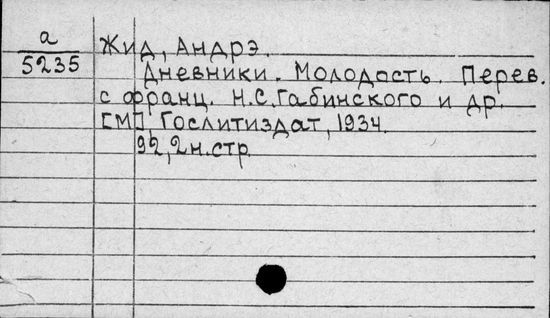 а
5235
Жид, Андрэ.
Дневники. Молодость. Перев.
с франц. Н.С.Габинского и др.
[М], Гослитиздат, 1934.
92, 2н.стр.